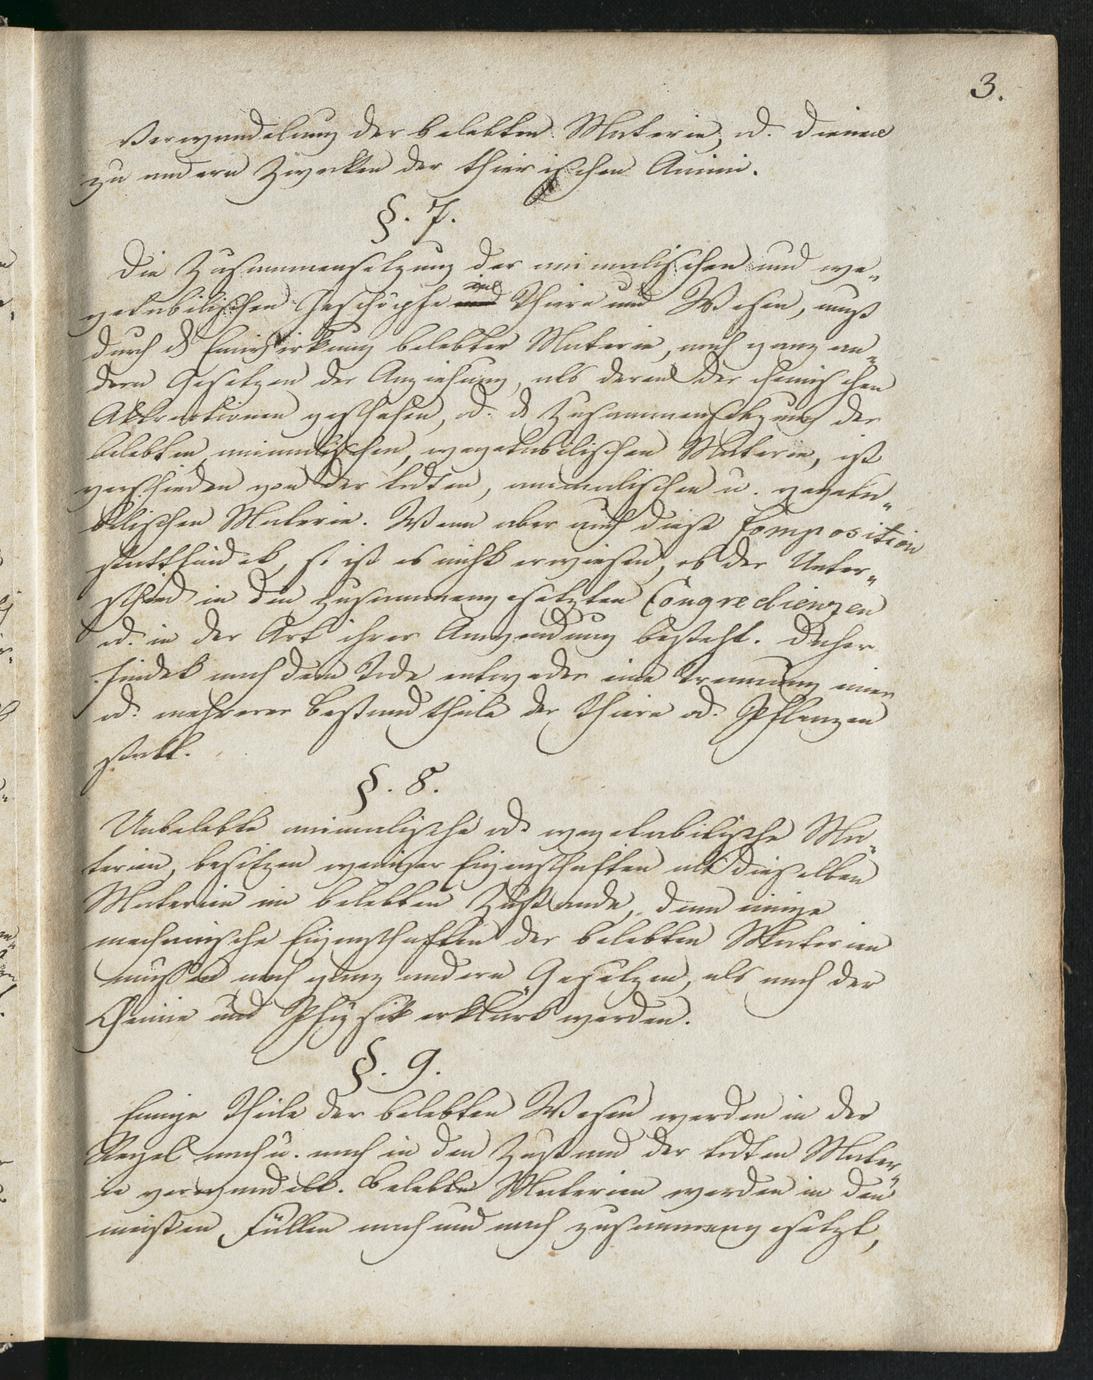 3.
Verwandelung der belebten Materie, od. dienen
zu andern Zwecken der thierischen
§. 7.
Die Zusammensetzung der animalischen und ve„
getabilischen Geschöpfe Thiere und Wesen, muß
durch d Einwirkung belebter Materie, nach ganz an„
dern Gesetzen der Anziehung, als denen der chemischen
Attractionen geschehen, od. d Zusammensetzung der
belebten animalischen, vegetabilischen Materie, ist
verschieden von der todten, animalischen u. vegeta„
bilischen Materie. Wenn aber auch diese Composition
stattfindet, so ist es nicht erwiesen, ob der Unter„
schied in den zusammengesetzten Congredienzen
od. in der Art ihrer Anwendung besteht. Daher
findet nach dem Tode entweder eine Trennung eines
od. mehrerer Bestandtheile der Thiere od. Pflanzen
statt.
§. 8.
Unbelebte animalische od. vegetabilische Ma„
terien, besitzen weniger Eigenschaften als dieselben
Materien im belebten Zustande, denn einige
mechanische Eigenschaften der belebten Materien
müssen nach ganz andern Gesetzen, als nach der
Chemie und Physik erklärt werden.
§. 9.
Einige Theile der belebten Wesen werden in der
Regel nach u. nach in den Zustand der todten Mater„
ie verwandelt. Belebte Materien werden in den
meisten Fällen nach und nach zusammengesetzt,